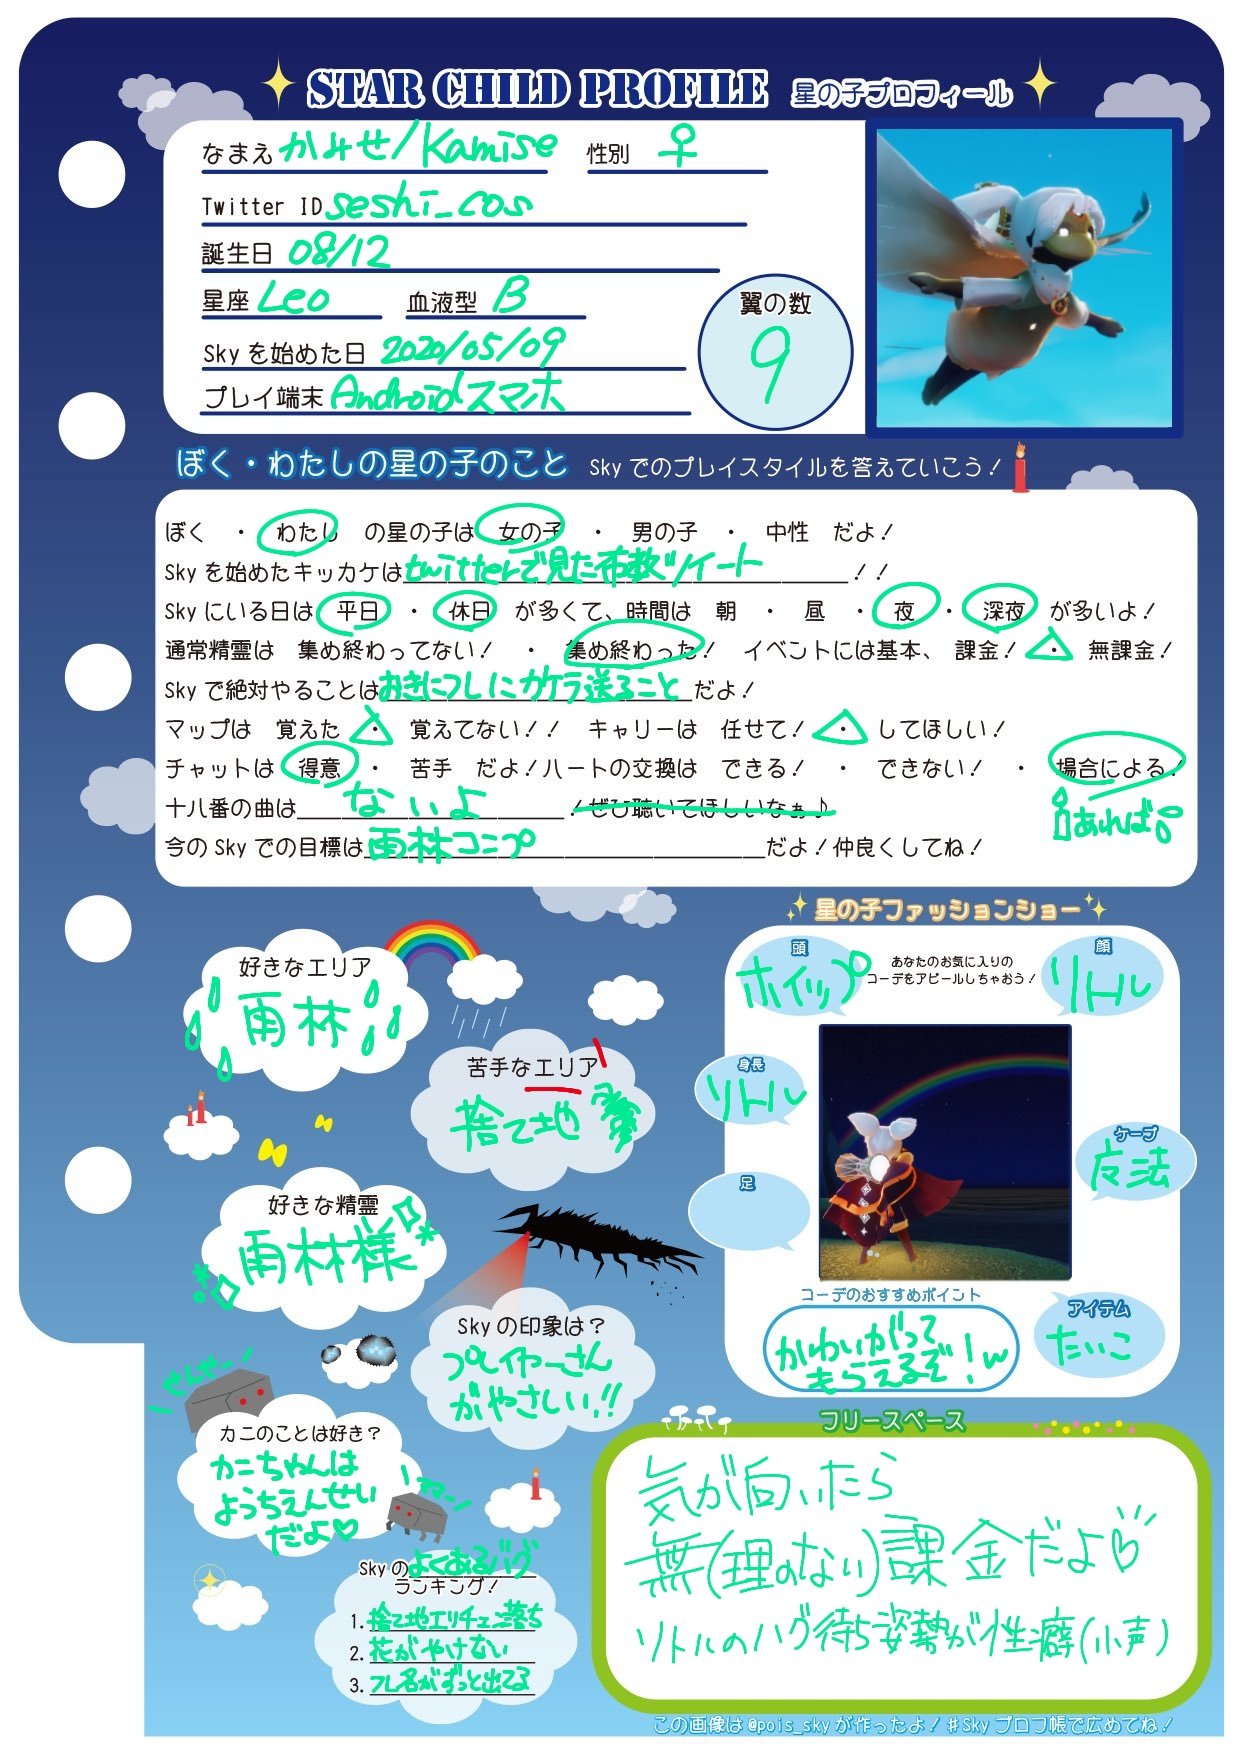 STAR CHILD PROFILE 星の子プロフィール
なまえ かみせ/Kamise 性別 ♀
Twitter ID seshi_cos
誕生日 08/12
星座 Leo 血液型 B
翼の数
9
Skyを始めた日 2020/05/09
プレイ端末 Androidスマホ
ぼく・わたしの星の子のこと Skyでのプレイスタイルを答えていこう!
ぼく ・ わたし の星の子は 女の子 ・ 男の子 ・ 中性 だよ!
Skyを始めたキッカケは twitterで見た布教ツイート !!
Skyにいる日は 平日 ・ 休日 が多くて、時間は 朝 ・ 昼 ・ 夜 ・ 深夜 が多いよ!
通常精霊は 集め終わってない! ・ 集め終わった! イベントには基本、 課金! ・ 無課金!
Skyで絶対やることは おきにフレにカケラ送ること だよ!
マップは 覚えた ・ 覚えてない!! キャリーは 任せて! ・ してほしい!
チャットは 得意 ・ 苦手 だよ!ハートの交換は できる! ・ できない! ・ 場合による!
十八番の曲は ないよ !ぜひ聴いてほしいなぁ♪
あれば
今のSkyでの目標は 雨林コンプ だよ!仲良くしてね!
好きなエリア
雨林
苦手なエリア
捨て地
好きな精霊
雨林様
Skyの印象は?
プレイヤーさん
がやさしい!!
せんせー!
カニのことは好き?
カニちゃんは
ようちえんせい
だよ♡
ママー!
Skyのよくあるバグ
ランキング!
1. 捨て地エリチェン落ち
2. 花がやけない
3. フレ名がずっと出てる
星の子ファッションショー
あなたのお気に入りの
コーデをアピールしちゃおう!
頭
ホイップ
顔
リトル
身長
リトル
ケープ
魔法
足
アイテム
たいこ
コーデのおすすめポイント
かわいがって
もらえるぞ!w
フリースペース
気が向いたら
無(理のない)課金だよ♡
リトルのハグ待ち姿勢が性癖(小声)
この画像は@pois_skyが作ったよ!#Skyプロフ帳で広めてね!